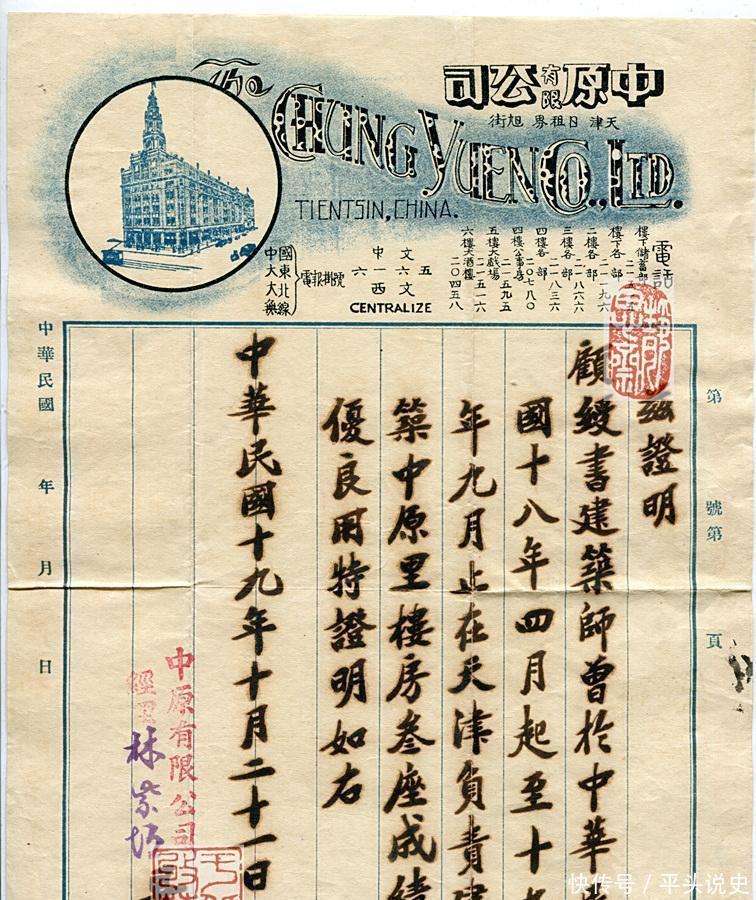 The
CHUNG YUEN CO., LTD.
TIENTSIN, CHINA.
中原有限公司
天津日租界旭街
電話
樓下儲蓄部
樓下各部 二一一九六
二樓各部 二一八六六
三樓各部 二一八三六
四樓各部 二〇七八〇
四樓公事房 二二九五
五樓大戲場 二一五一六
六樓大酒樓 二〇四五八
五
文六文
中一西
六
CENTRALIZE
電報掛號
國東北線
中大大無
第 號第 頁
茲證明
顧綬書建築師曾於中華
國十八年四月起至十
年九月止在天津負責建
築中原里樓房叁座成績
優良用特證明如右
中華民國十九年十月二十一日
中原有限公司
經理
林紫垣
中華民國 年 月 日
快传号/平头说史